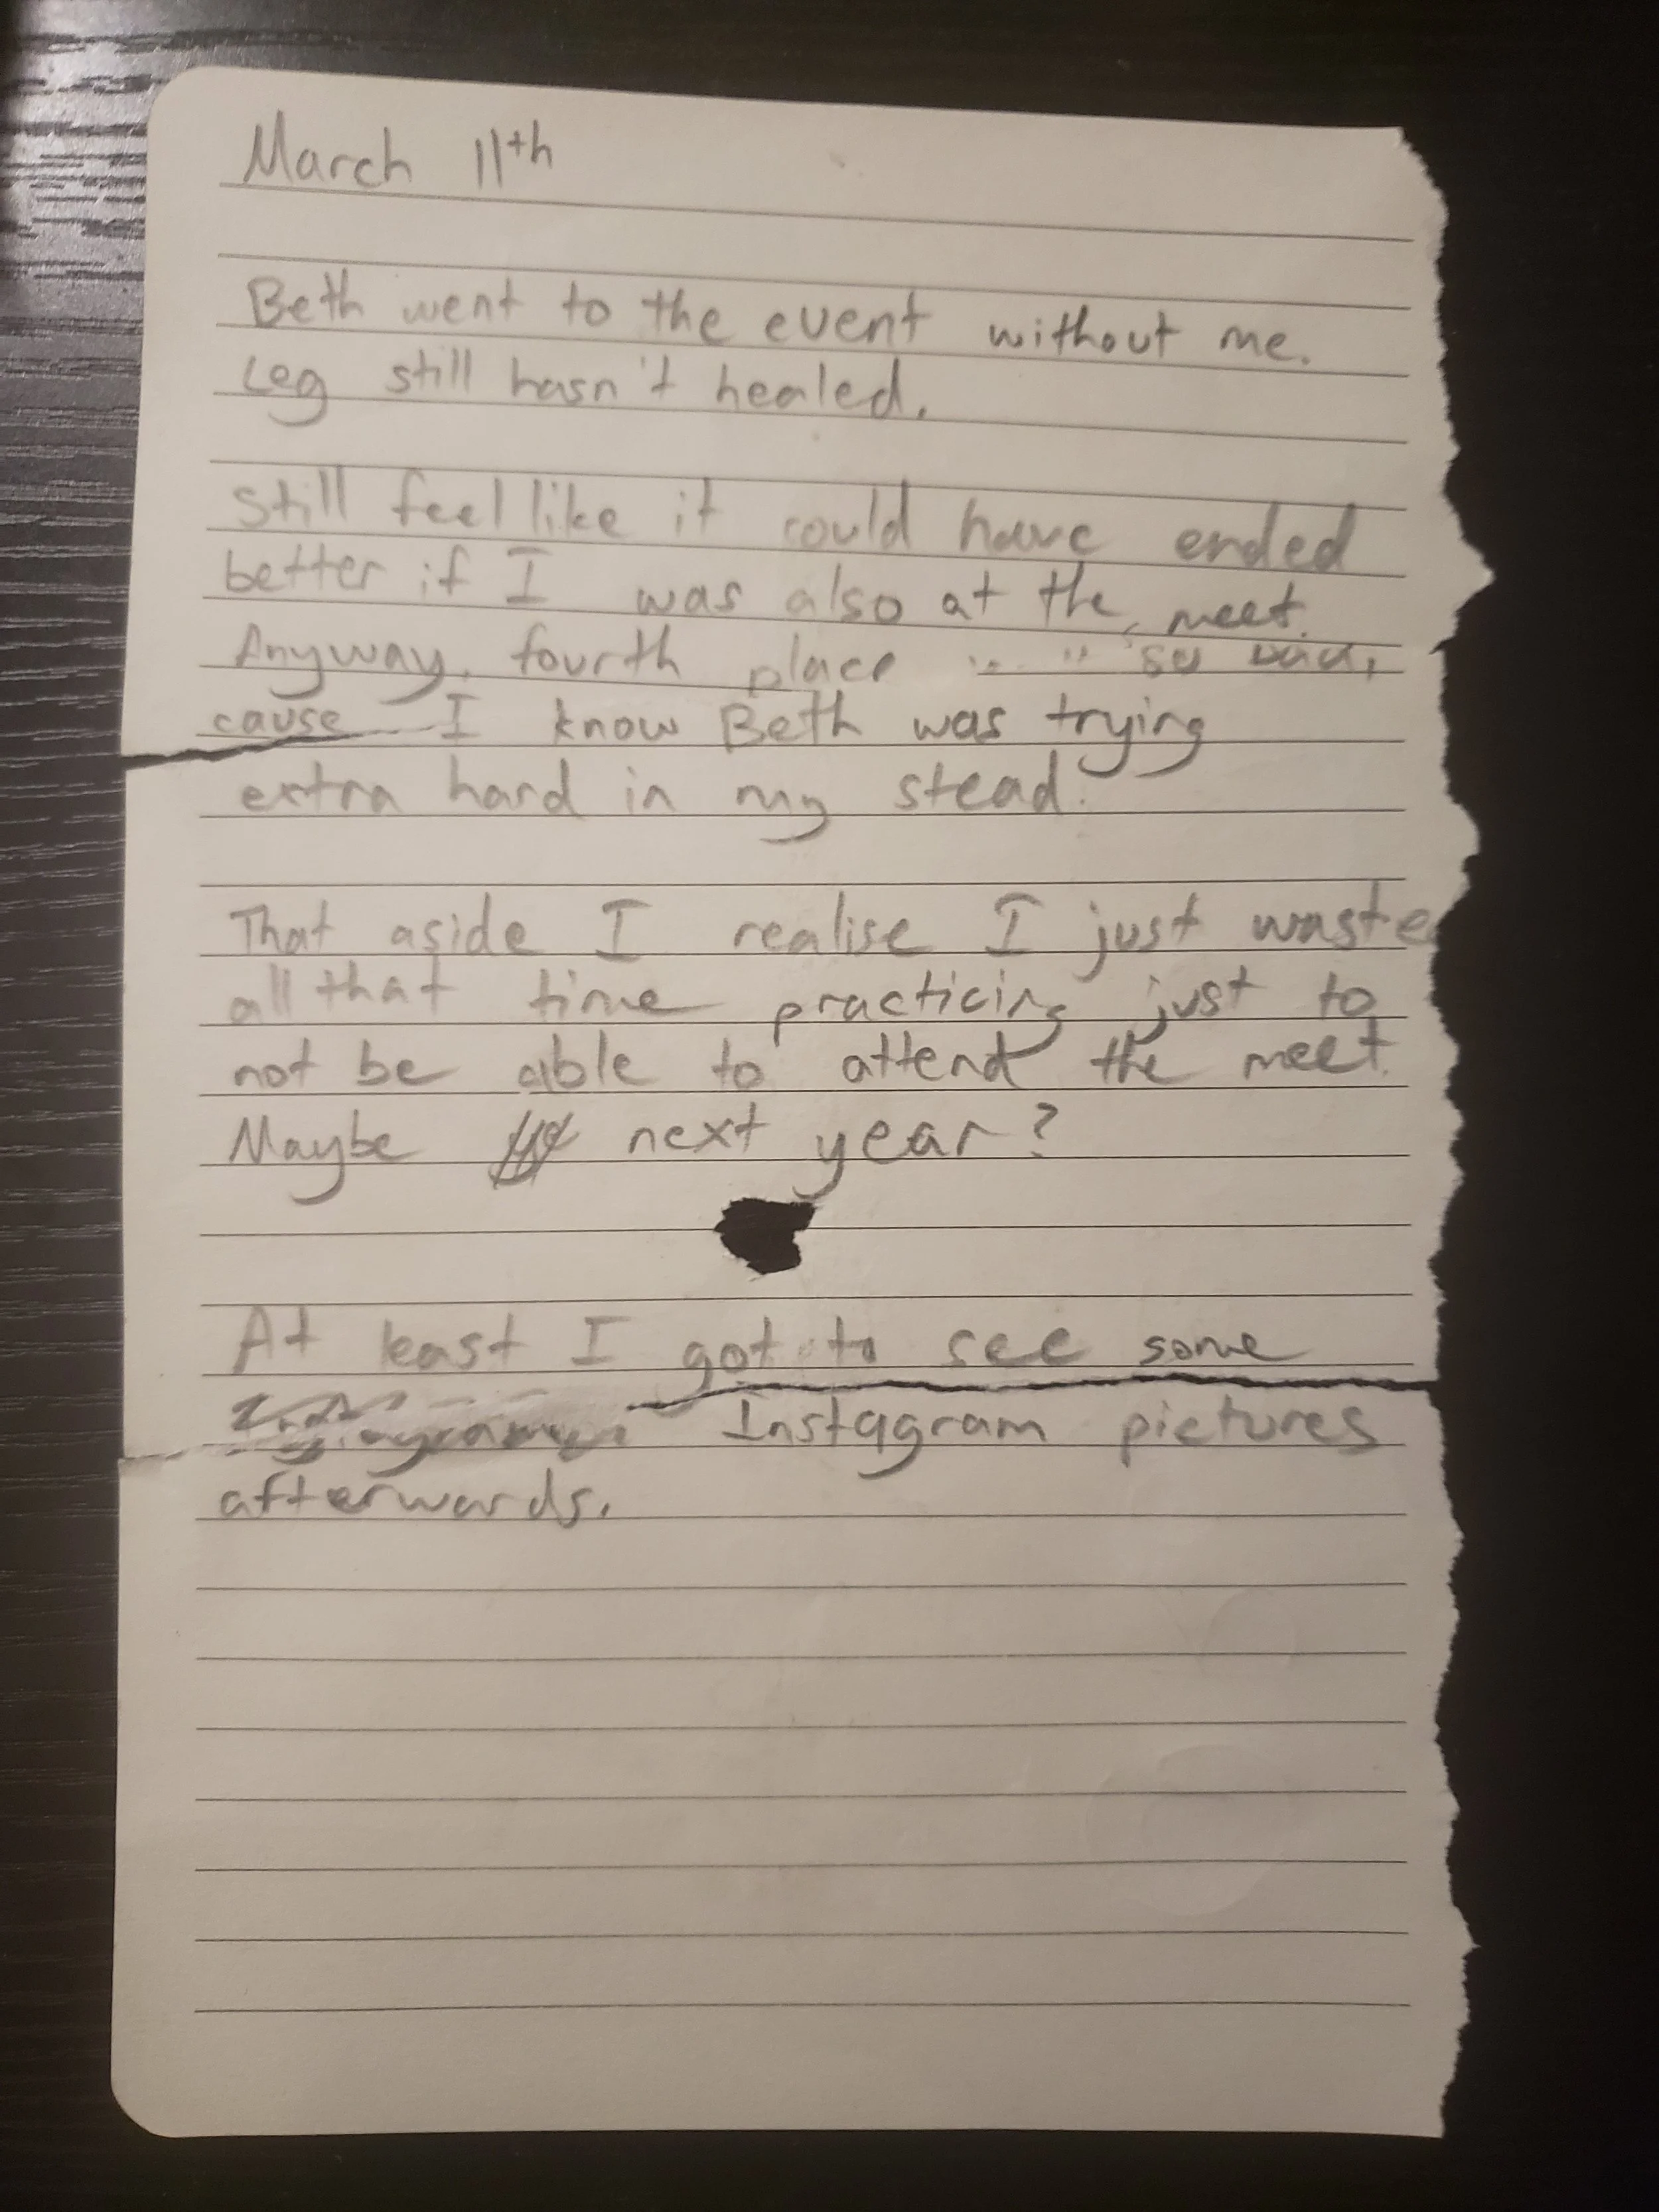 March 11th
Beth went to the event without me.
Leg still hasn't healed.
Still feel like it could have ended
better if I was also at the meet.
Anyway, fourth place so bad,
cause I know Beth was trying
extra hard in my stead.
That aside I realise I just waste
all that time practicing just to
not be able to attend the meet.
Maybe next year?
At least I got to see some
Instagram pictures
afterwards.